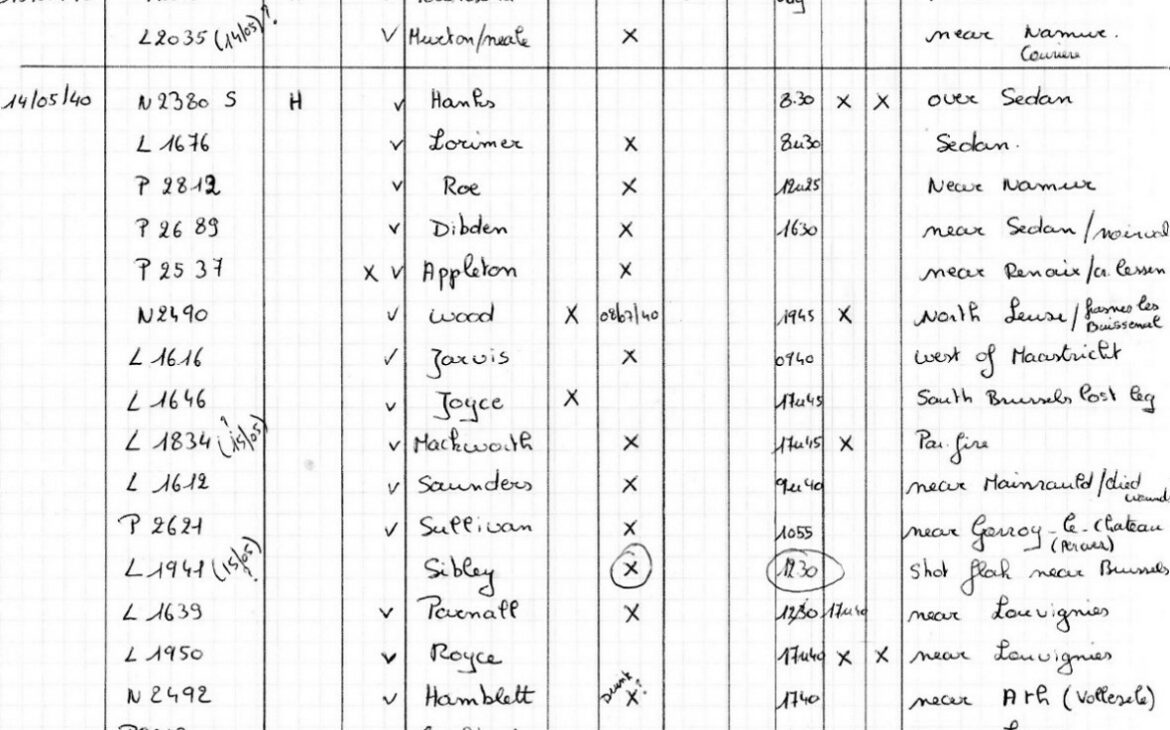 L2035 (14/05)? V Muxton/neale X near Namur.
Couriere
14/05/40 N2380 S H V Hanks 8.30 X X over Sedan
L 1676 V Lorimer X 8u30 Sedan.
P 2812 V Roe X 12u25 Near Namur
P 2689 V Dibden X 1630 near Sedan/noirval
P 2537 X V Appleton X near Renaix/
N2490 V Wood X 08/07/40 1945 X North Leuse/frasnes les
Buissenal
L 1616 V Jarvis X 0940 west of Maastricht
L 1646 V Joyce X 17u45 South Brussels lost leg
L 1834 (15/05)? V Mackworth X 17u45 X Par. fire
L 1612 V Saunders X 9u40 near Mainrauld/died
wounds
P 2621 V Sullivan X 1055 near Gerroy-le-Chateau
L 1941 (15/05)? Sibley X 1230 shot flak near Brussels
L 1639 V Parnall X 1230 17u40 near Louvignies
L 1950 V Royce 17u40 X X near Louvignies
N 2492 V Hamblett X? 1740 near Ath (Vollezele)